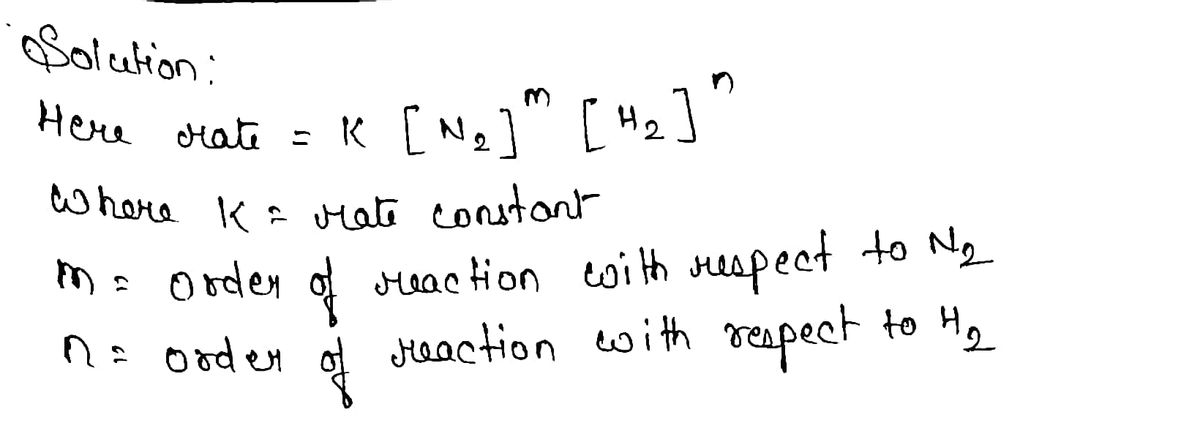 Solution:
Here rate = K [N₂]ᵐ [H₂]ⁿ
where K = rate constant
m = order of reaction with respect to N₂
n = order of reaction with respect to H₂